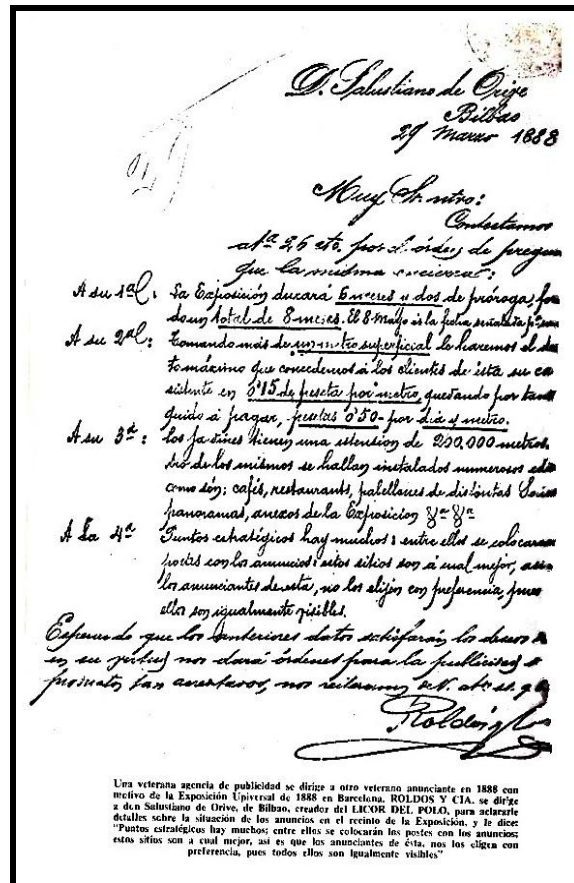 D. Salustiano de Orive
Bilbao
29 Marzo 1888
Muy Sr. ntro:
Contestamos
a la 26 cte. por el órden de pregun
que la misma enciena:
A su 1ª: La Exposición durará 6 meses y dos de próroga, for
do un total de 8 meses. El 8 Mayo és la fecha señalada pª
A su 2ª: Tomando más de un metro superficial le haremos el des
to máximo que concedemos á los clientes de ésta su ca
sistente en 0'15 de peseta por metro, quedando por tan
quido á pagar, pesetas 0'50- por dia y metro.
A su 3ª: Los jardines tienen una estension de 200,000 metros.
tro de los mismos se hallan instalados numerosos edi
como són; cafés, restaurants, pabellones de distintas
panoramas, anexos de la Exposicion &ª &ª
A la 4ª Puntos estratégicos hay muchos: entre ellos se colocaran
postes con los anuncios: estos sitios son á cual mejor, asi
los anunciantes de esta, no los elijen con preferencia, pues
ellos son igualmente visibles.
Esperando que los anteriores datos satisfarán los deseos
en su virtud nos dará órdenes para la publicidad
nos reiteramos
Roldós y Cª
Una veterana agencia de publicidad se dirige a otro veterano anunciante en 1888 con
motivo de la Exposición Universal de 1888 en Barcelona. ROLDOS Y CIA. se dirige
a don Salustiano de Orive, de Bilbao, creador del LICOR DEL POLO, para aclararle
detalles sobre la situación de los anuncios en el recinto de la Exposición, y le dice:
"Puntos estratégicos hay muchos; entre ellos se colocarán los postes con los anuncios;
estos sitios son a cual mejor, así es que los anunciantes de ésta, nos los eligen con
preferencia, pues todos ellos son igualmente visibles"